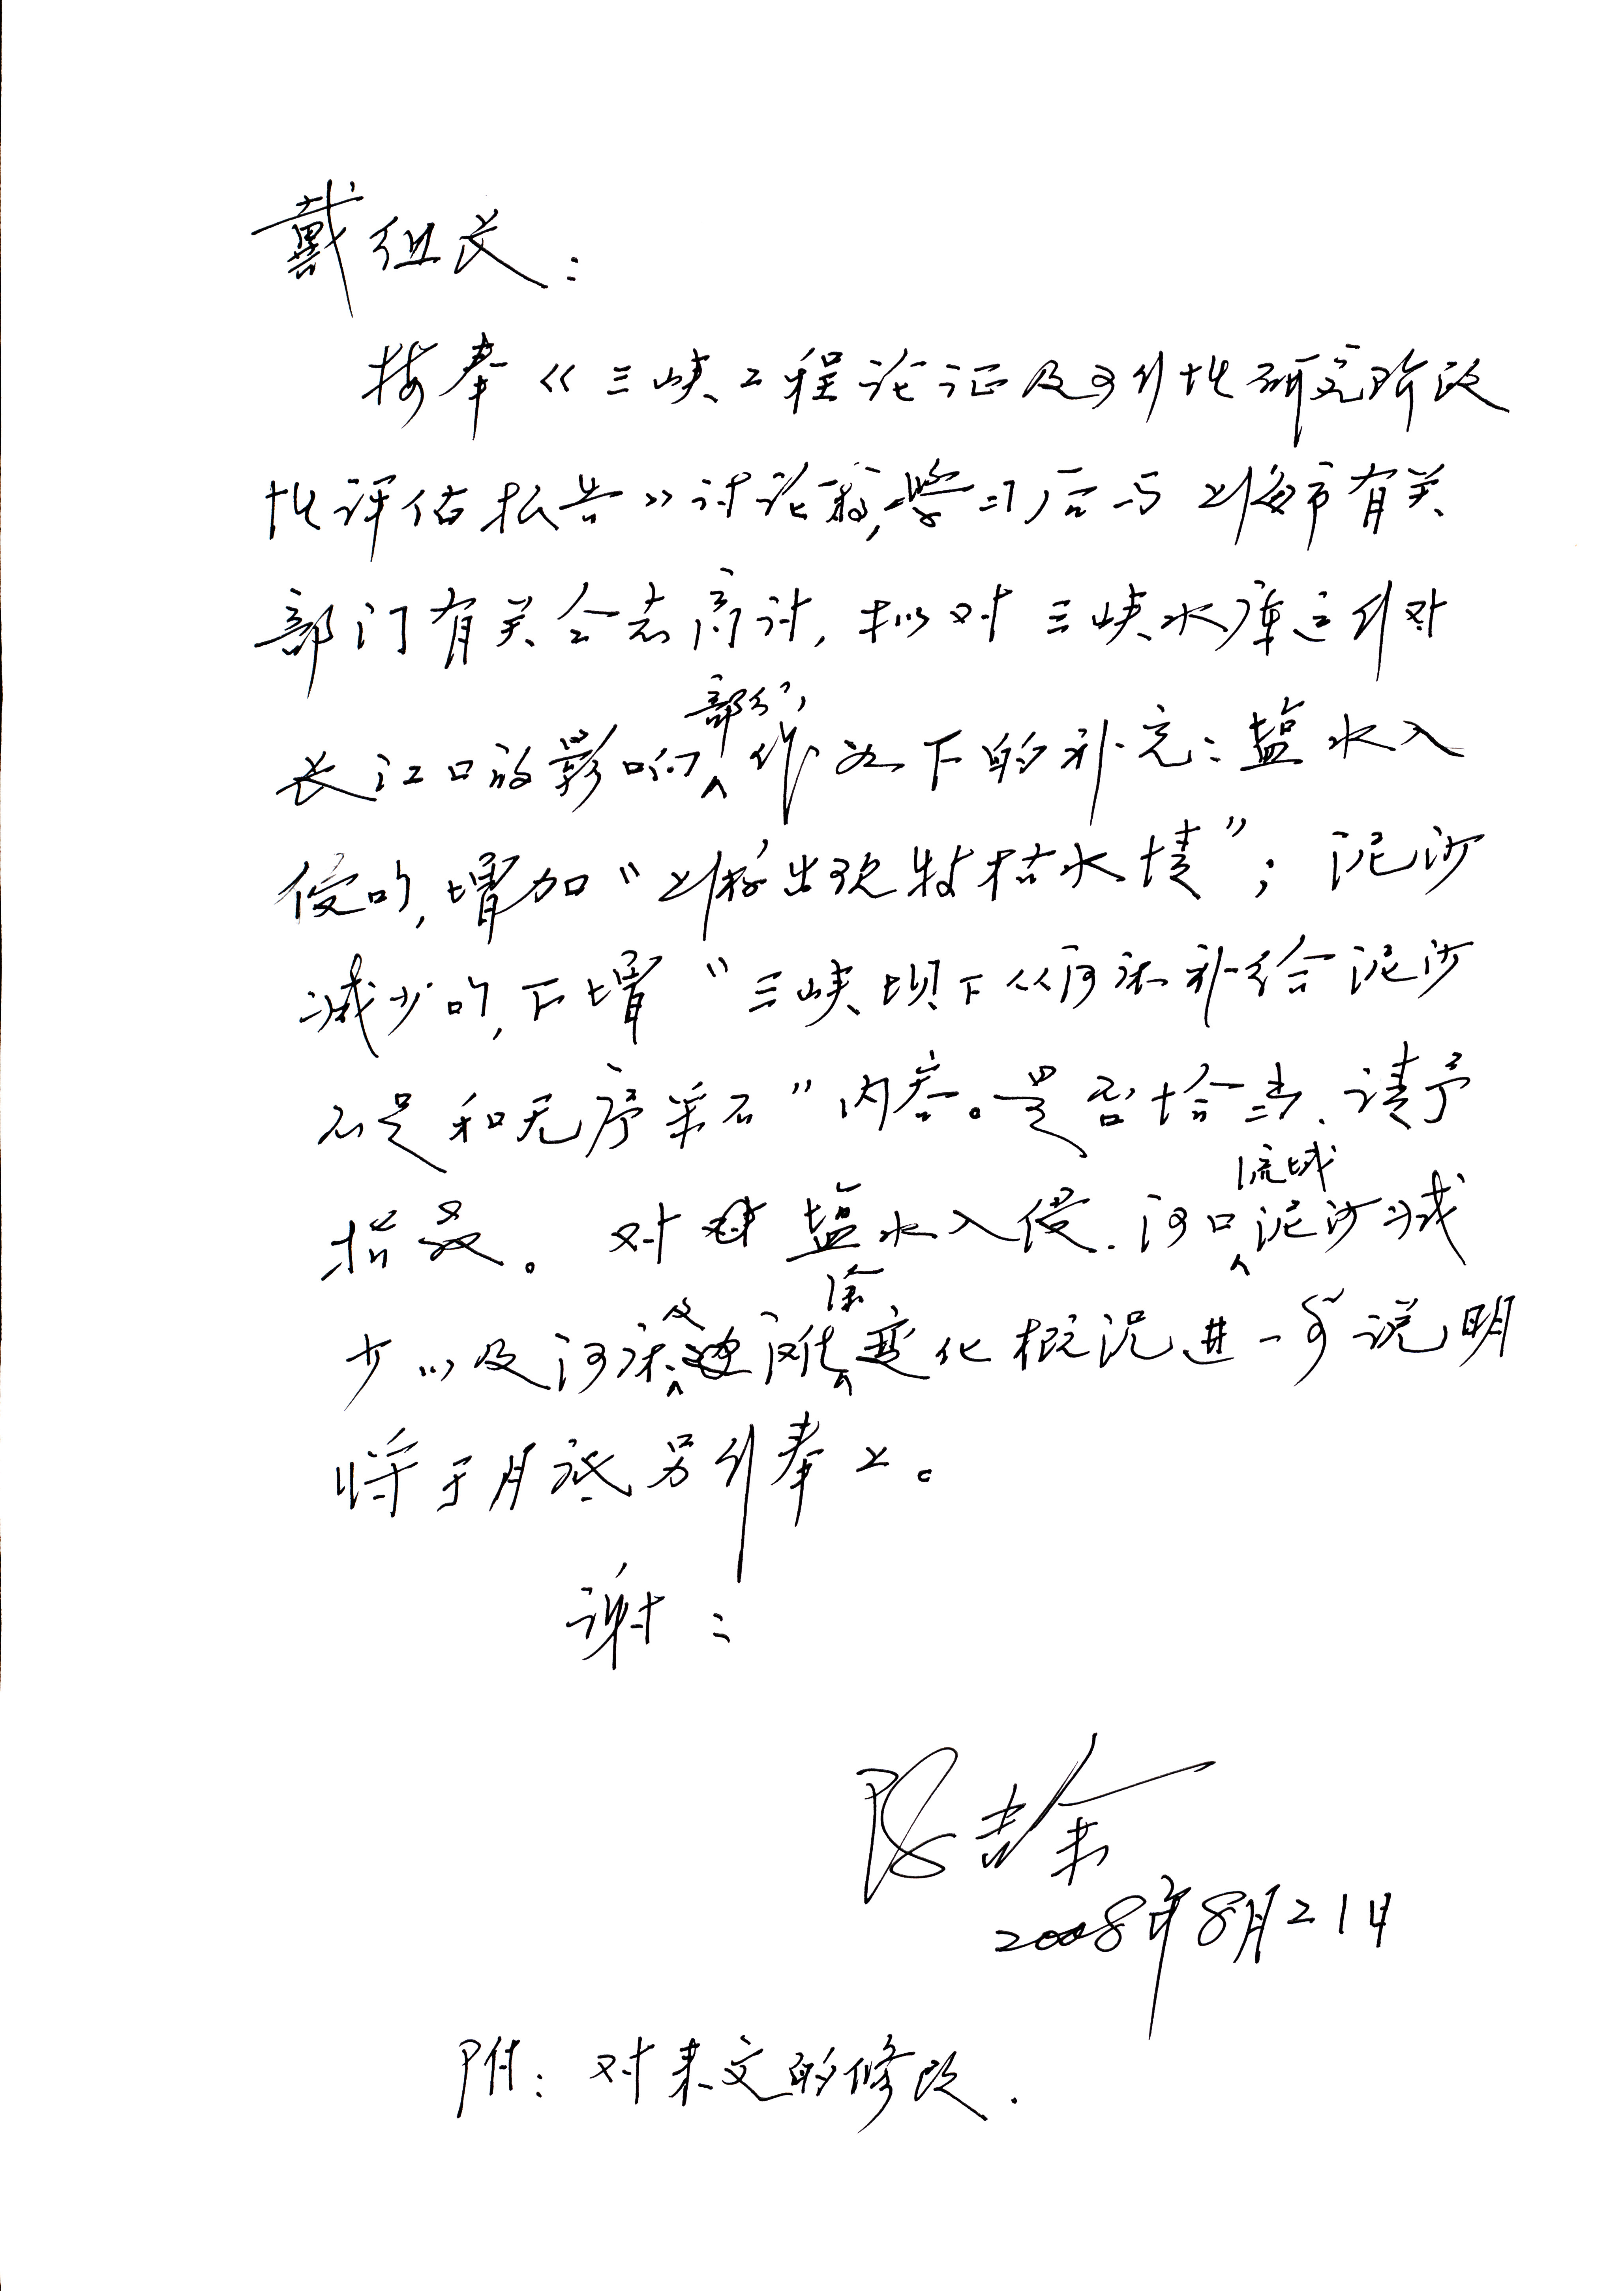 戴组长：
接奉《三峡工程论证及可行性研究阶段
性评估报告》讨论稿，学习后与上海市有关
部门有关会志商讨，拟对三峡水库运行对
长江口的影响部分，作如下的补充：盐水入
侵的，增加“上游出现特枯水情”；泥沙
减少的，下增“三峡坝下从河床补给泥沙
不足和无序采石”内容。是否恰当、请予
指教。对盐水入侵、河口流域泥沙减
少以及河床及河势冲淤变化概况进一步说明
将于月底另行奉上。
谢：
陈吉余
2008年8月21日
附：对来文的修改．